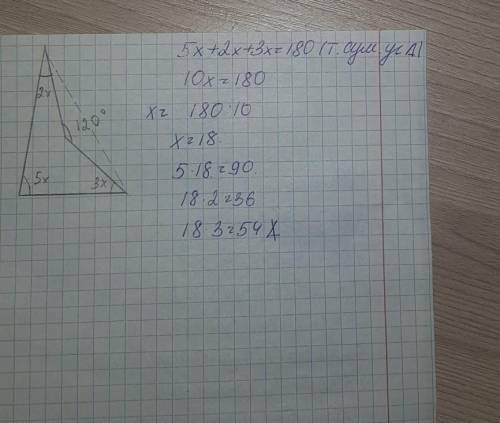 5x+2x+3x=180 (т. сум. уг Δ)
10x=180
x= 180:10
x=18
5·18=90
18·2=36
18·3=54
2x
120°
5x
3x